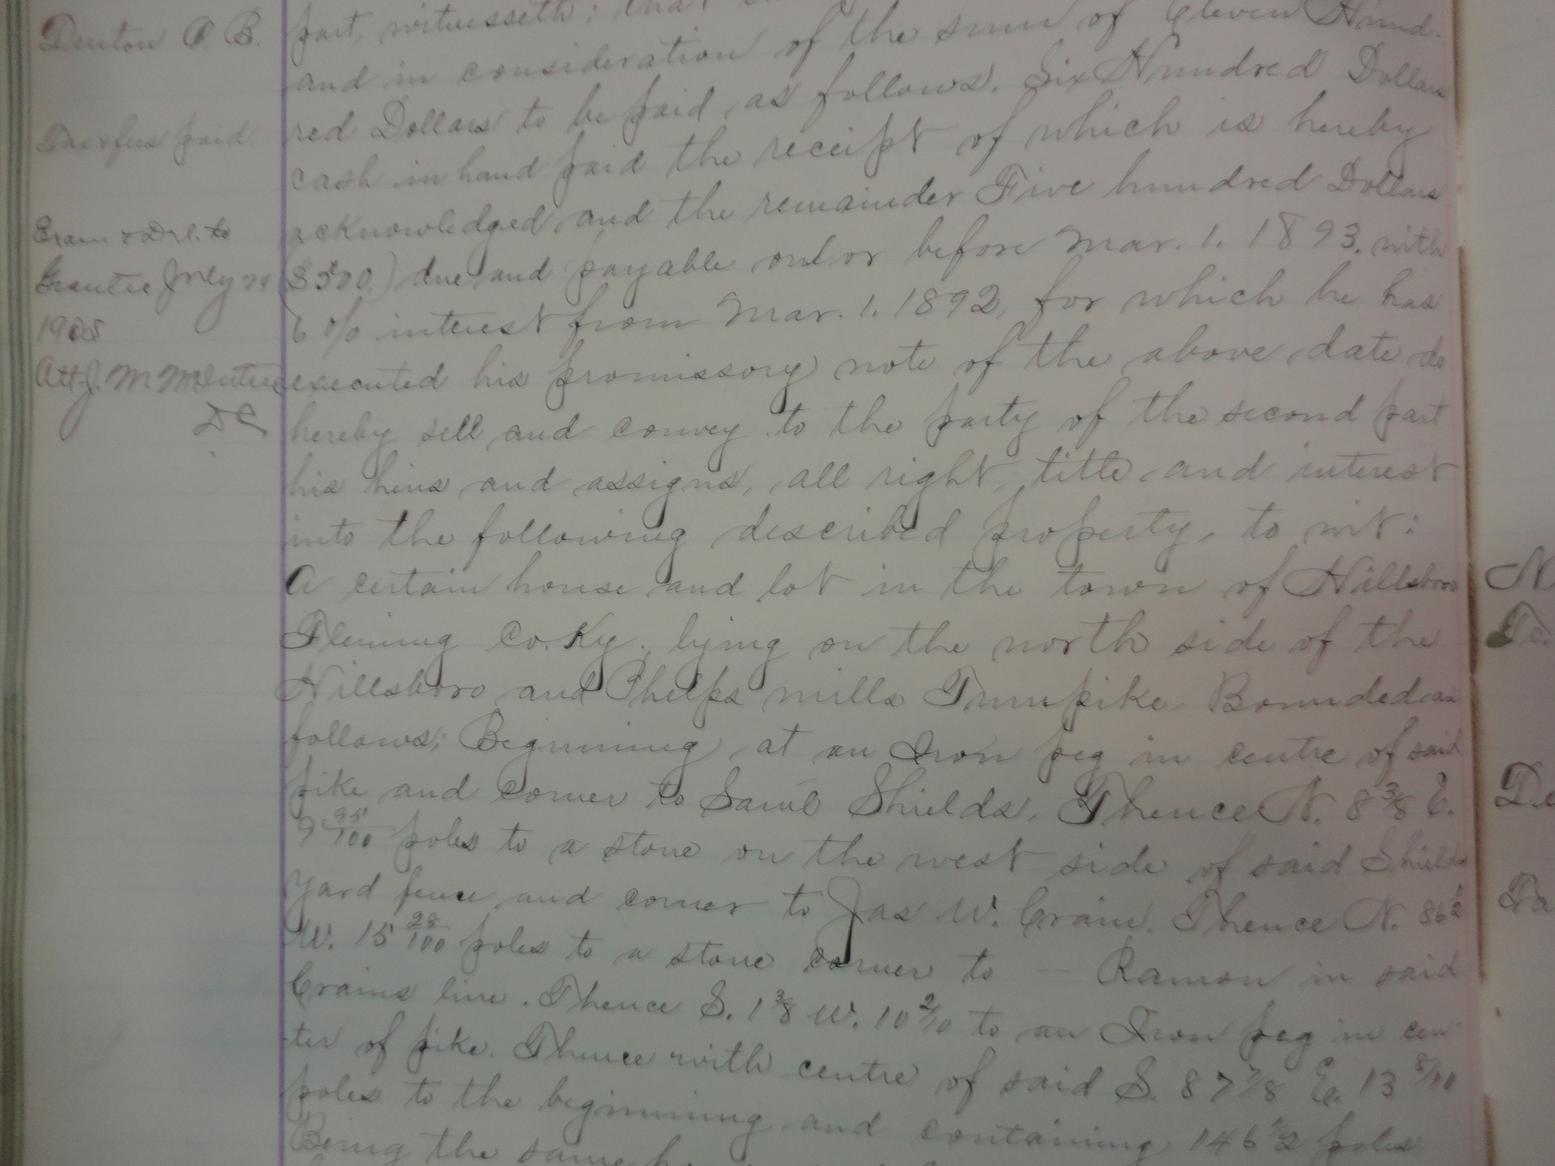 Denton P. B.
Tax & fees paid.
Exam & Del. to
Grantee July 24
1908
Att. J. M. McIntire
D C
part, witnesseth; that
and in consideration of the sum of Eleven Hund-
red Dollars to be paid as follows. Six Hundred Dollars
cash in hand paid the receipt of which is hereby
acknowledged and the remainder Five hundred Dollars
($500.) due and payable on or before Mar. 1. 1893. with
6 o/o interest from Mar. 1. 1892, for which he has
executed his promissory note of the above date do
hereby sell and convey to the party of the second part
his heirs and assigns, all right, title, and interest
into the following described property, to wit:
A certain house and lot in the town of Hillsboro
Fleming Co. Ky. lying on the north side of the
Hillsboro and Phelps mills Turnpike. Bounded as
follows; Beginning at an Iron peg in centre of said
pike and corner to Saml Shields. Thence N. 8 3/8 E.
9 95/100 poles to a stone on the west side of said Shields
yard fence and corner to Jas W. Crain. Thence N. 86 1/2
W. 15 28/100 poles to a stone corner to — Ramon in said
Crains line. Thence S. 1 3/8 W. 10 2/10 to an Iron peg in cen
ter of pike. Thence with centre of said S. 87 7/8 E. 13 8/10
poles to the beginning and containing 146 1/2 poles
Being the same
N.
To.
De
Ta